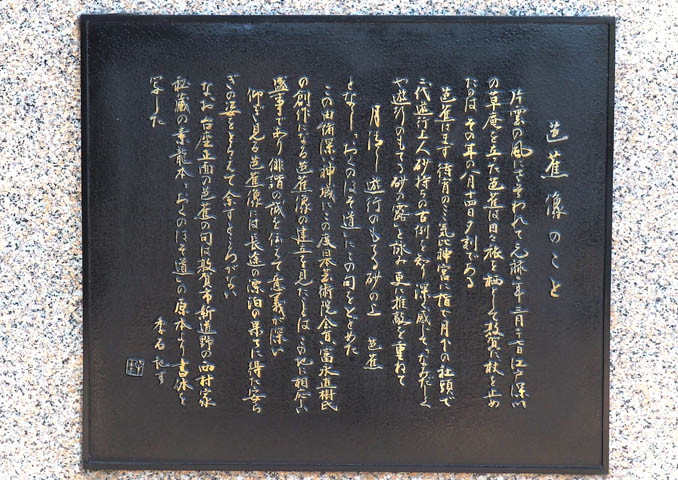 芭蕉像のこと
片雲の風にさそわれて元禄二年三月二十七日江戸深川
の草庵を立った芭蕉は日々旅を栖として敦賀に杖を止め
たのは その年の八月十四日夕刻である
芭蕉はまず待宵の気比神宮に指で月下の社頭で
二代遊行上人砂持ちの古例を知り 深く感じて なみだしく
や遊行のもてる砂の露 と詠み 更に推敲を重ねて
月清し 遊行のもてる砂の上 芭蕉
となし、おくのほそ道にこの句をとどめた
この由緒深い神域に この度日本芸術院会員 富永直樹氏
の創作になる芭蕉像の建立を見たことは この地に相応しい
盛事であり 俳諧の誠を伝えて意義が深い
仰ぎ見る芭蕉像には 長途の漂泊の果てに得た安ら
ぎの姿をとらえて余すところがない
なお 台座正面の芭蕉の句は敦賀市新道野の西村家
秘蔵の素龍本「おくのほそ道」の原本より書体を
写した
李石 記す